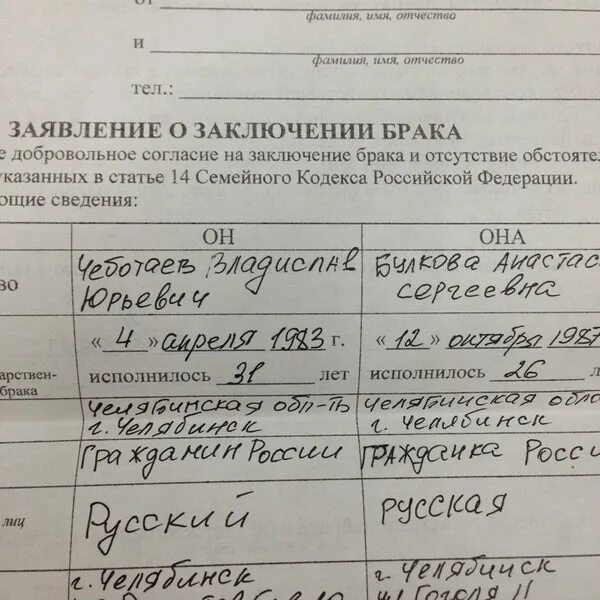 от
фамилия, имя, отчество
и
фамилия, имя, отчество
тел.:
ЗАЯВЛЕНИЕ О ЗАКЛЮЧЕНИИ БРАКА
е добровольное согласие на заключение брака и отсутствие обстояте
указанных в статье 14 Семейного Кодекса Российской Федерации.
ющие сведения:
ОН ОНА
Чеботаев Владислав Булкова Анастас
во Юрьевич Сергеевна
« 4 » апреля 1983 г. « 12 » октября 1987
арствен- исполнилось 31 лет исполнилось 26 л
брака
Челябинская обл-ть Челябинская обла
г. Челябинск г. Челябинск
Гражданин России Гражданка Росси
лиц Русский русская
г. Челябинск г. Челябинск
ул Гоголя 11